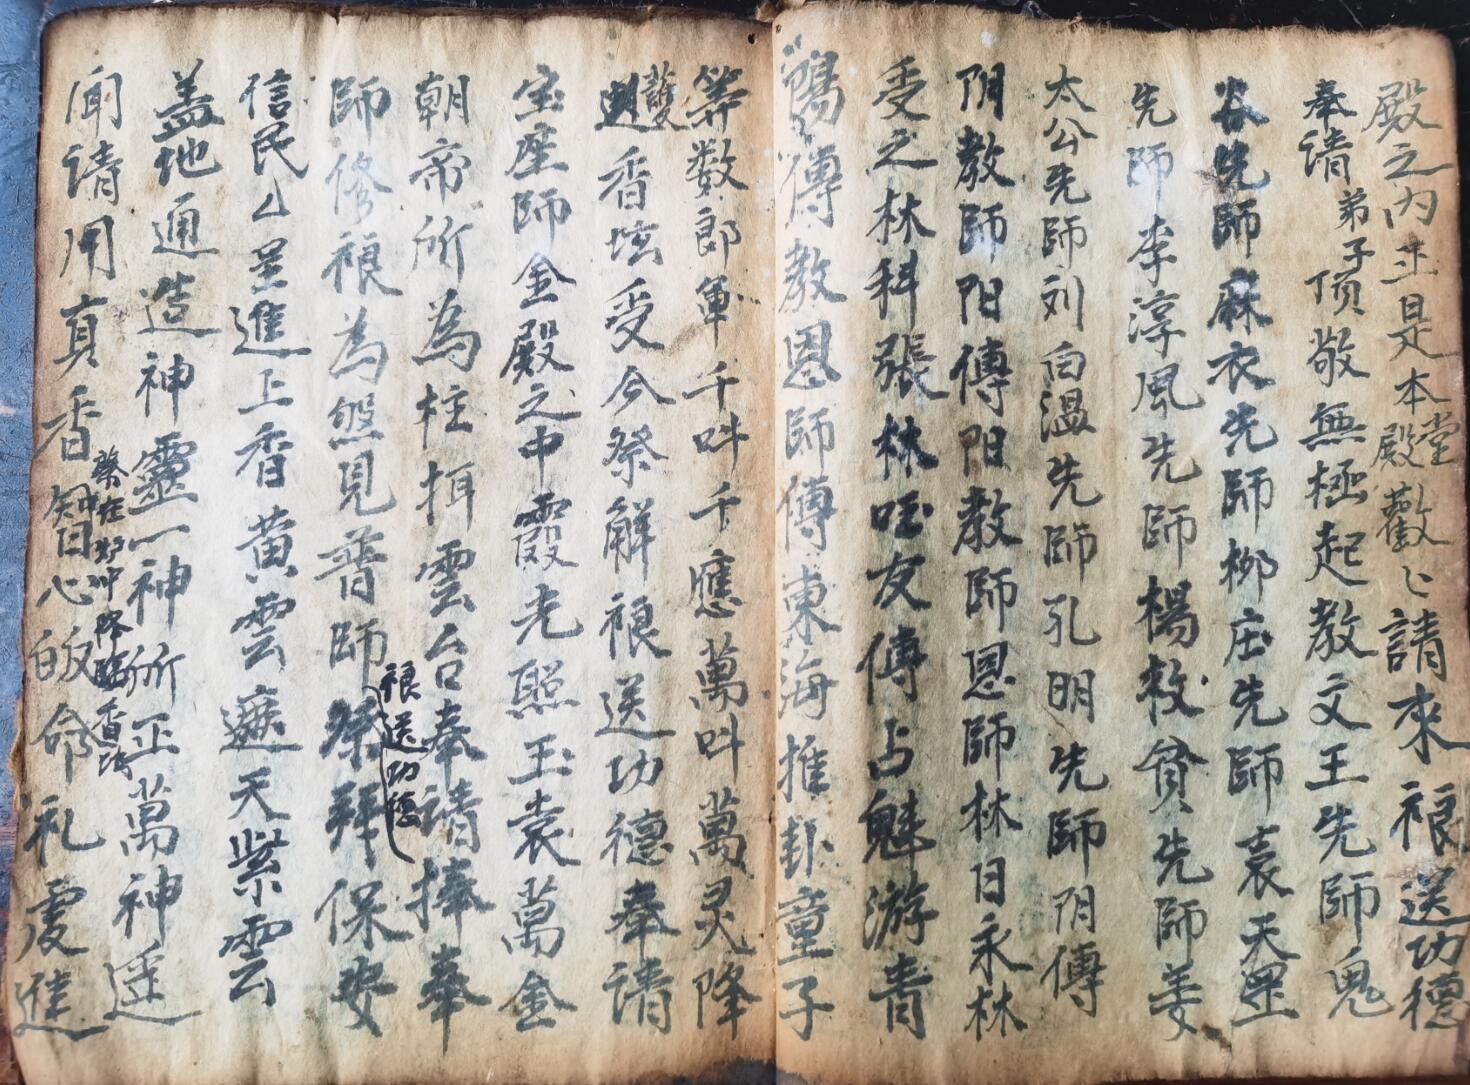 殿之内 正是本堂殿 勸々請來 禓送功德
奉請 弟子頂敬無極起教文王先師鬼
谷先師麻衣先師柳庄先師袁天罡
先師李淳風先師楊救貧先師姜
太公先師刘白温先師孔明先師阴傳
阴教師阳傳阳教師恩師林日永林
受之林科張林 友傳占魁游青
鴻傳教恩師傳東海推卦童子
等数郎軍千叫千應萬叫萬灵降
護 香坛受今祭解禓送功德奉請
宝座師金殿之中霞光照玉袁萬金
朝帝所為柱 雲台奉請捧奉
師修禓為怨見普師祭拜保安
禓送功德
信民厶呈進上香黄雲遮天紫雲
盖地通造神靈一神所正萬神遥
聞請用真香智心皈命礼虔進
降臨香坛